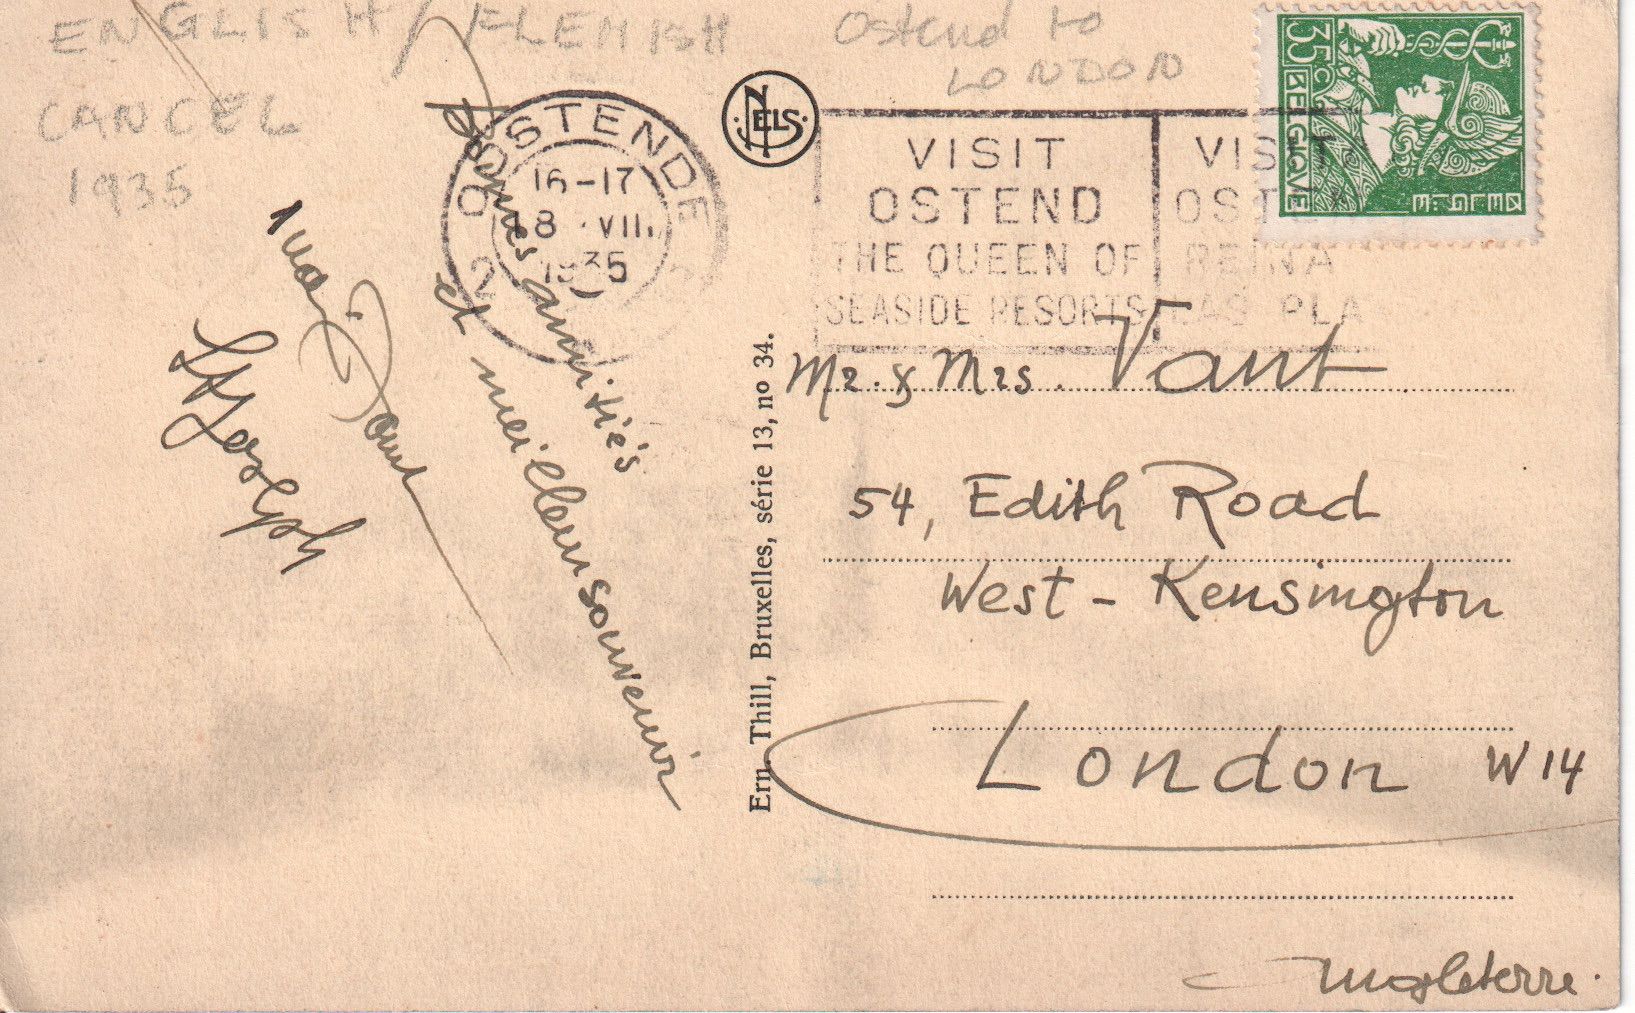 ENGLISH/FLEMISH
CANCEL
1935
Ostend to
LONDON
OOSTENDE
16-17
8 VII
1935
2
NELS
VISIT
OSTEND
THE QUEEN OF
SEASIDE RESORTS
VISIT
OSTE
REINA
LAS PLA
35c
BELGIQUE
BELGIË
Bonnes amitiés
et meilleur souvenir
Joseph
Ern. Thill, Bruxelles, série 13, nº 34.
Mr. & Mrs. Vant
54, Edith Road
West-Kensington
London W14
Angleterre.